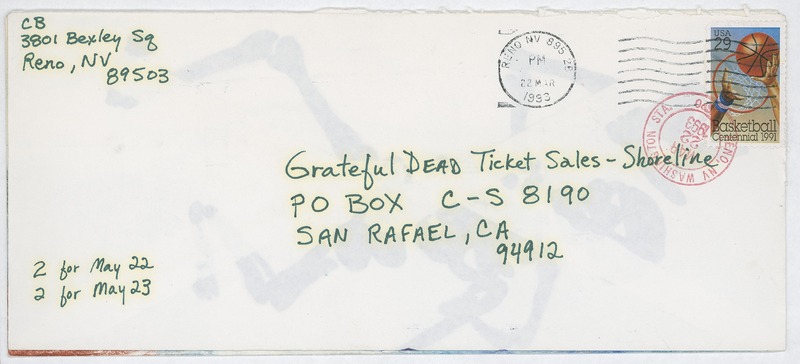 CB
3801 Bexley Sq
Reno, NV
89503
RENO NV 895 2B
PM
22 MAR
1993
USA
29
Basketball
Centennial 1991
RENO NV WASHINGTON STA.
Grateful DEAD Ticket Sales - Shoreline
PO BOX C-S 8190
SAN RAFAEL, CA
94912
2 for May 22
2 for May 23